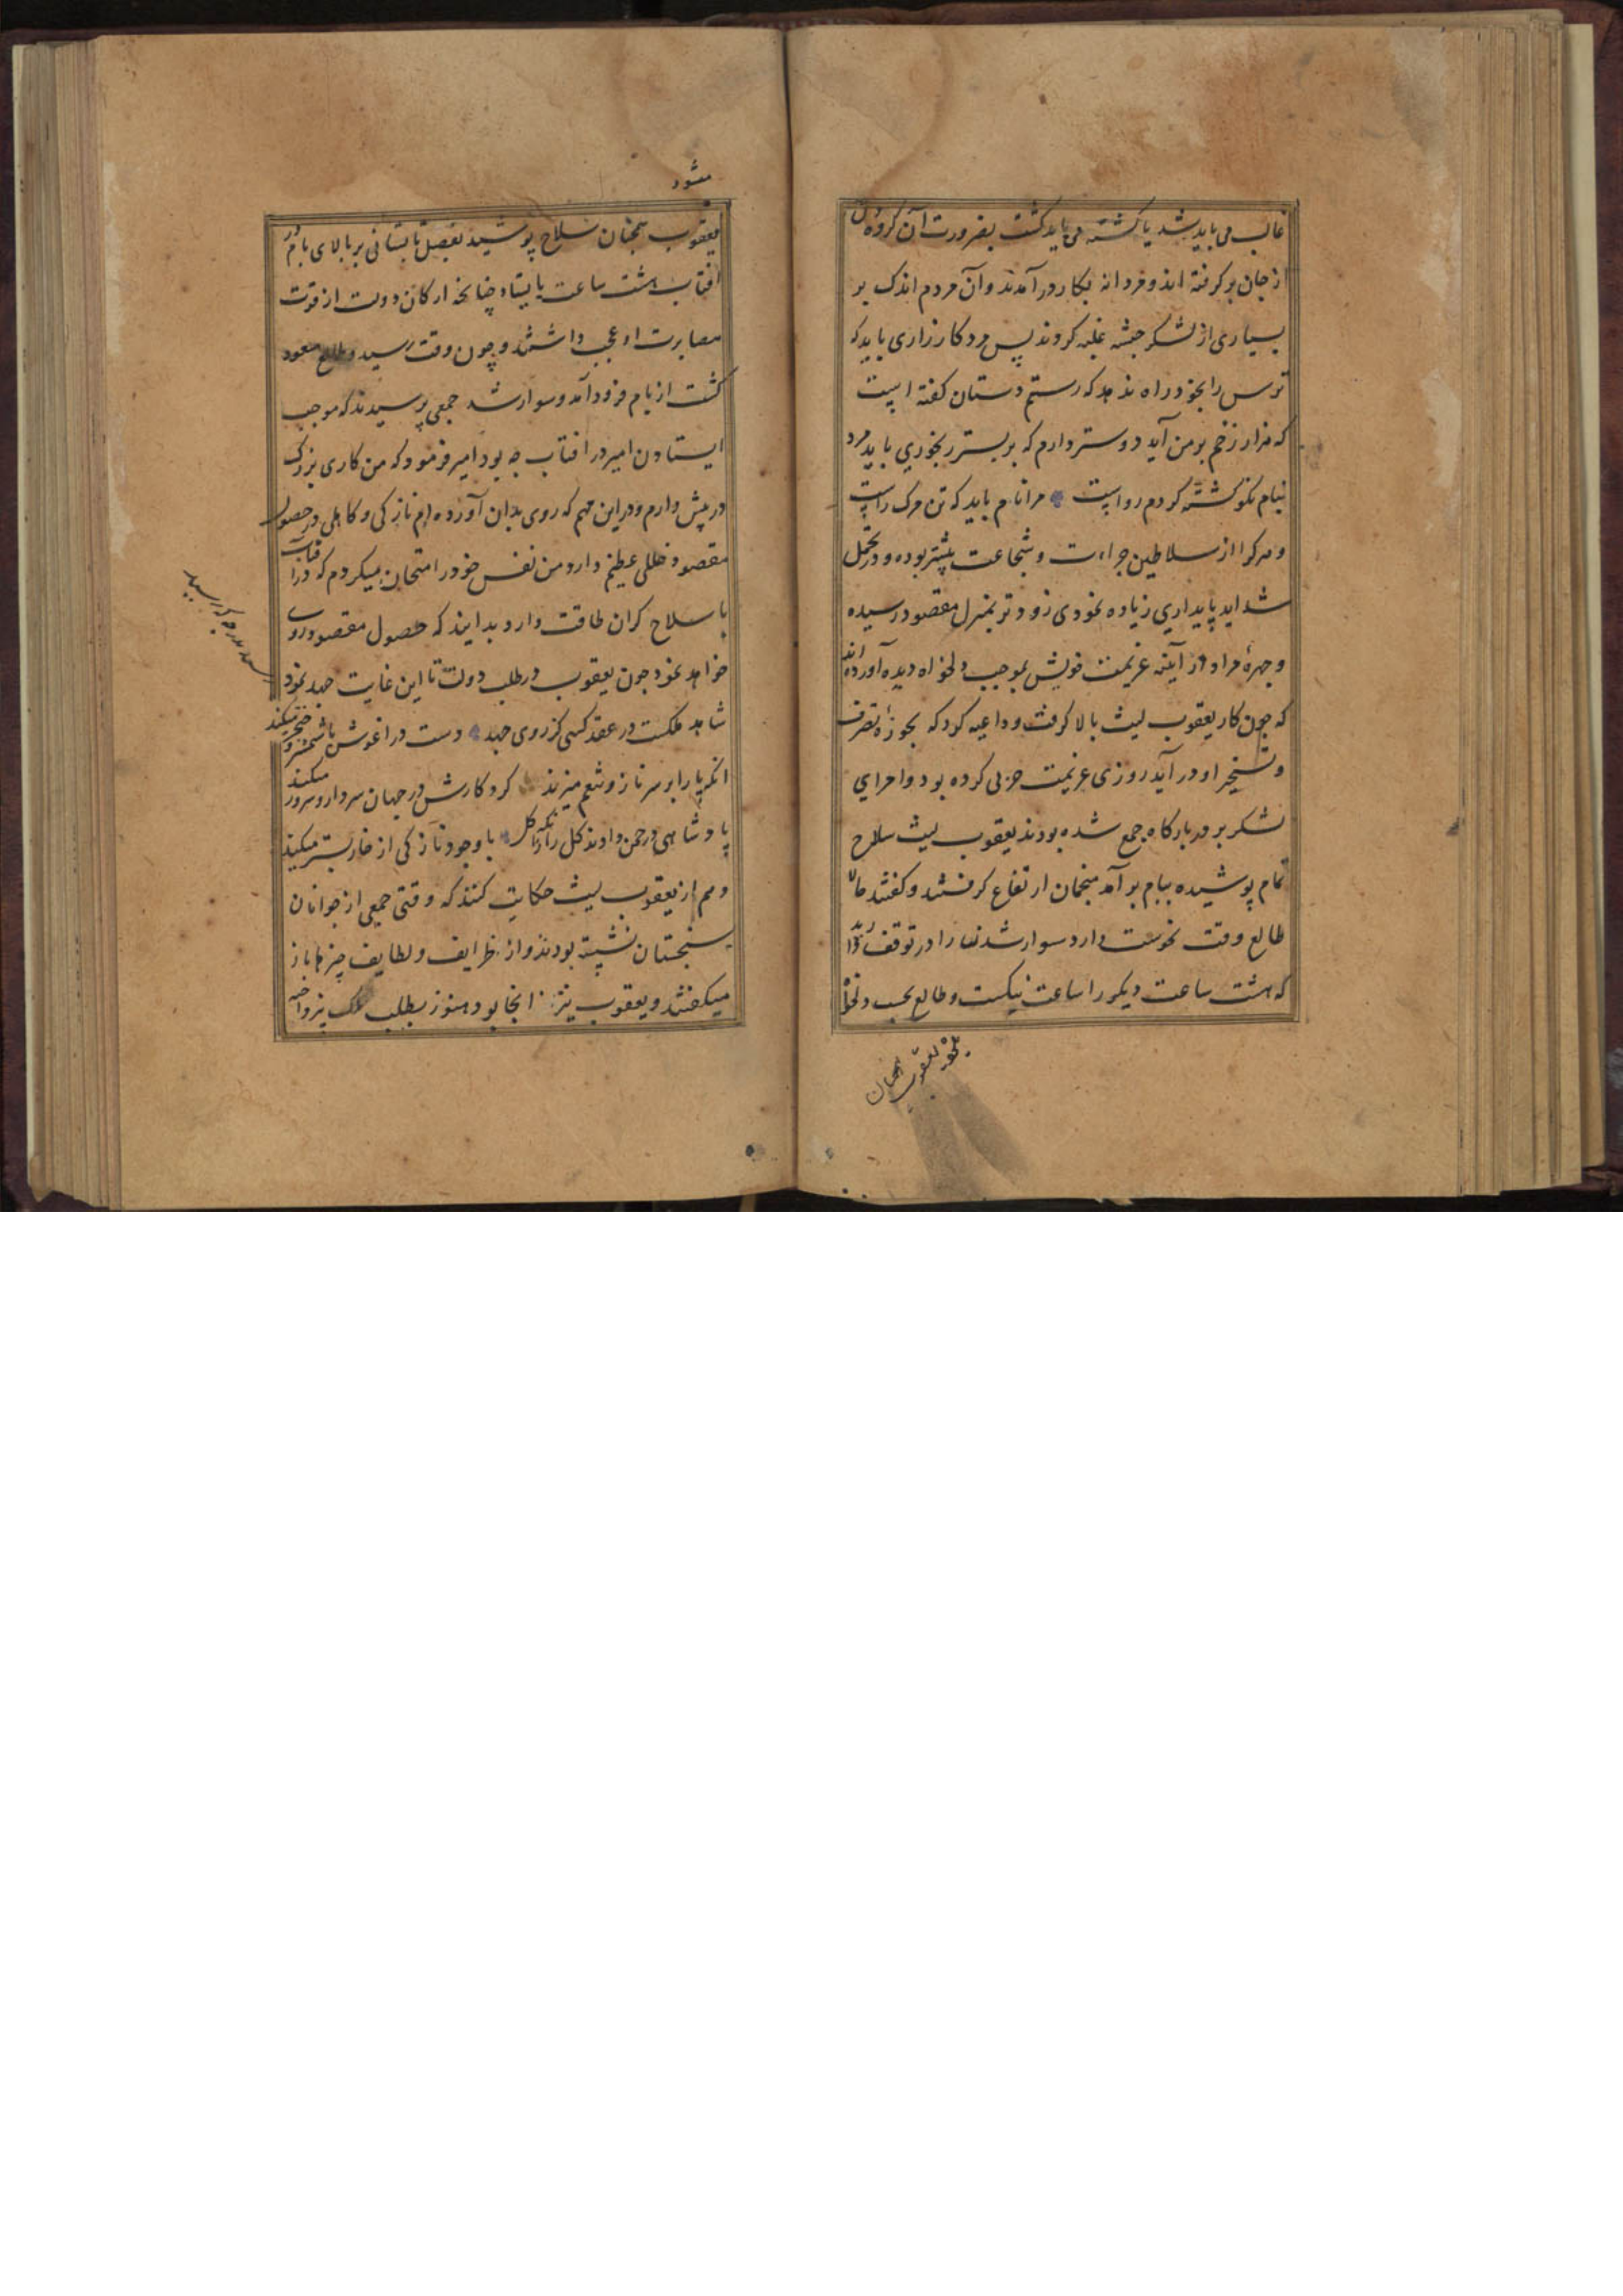 غالب می باید شد یا کشته می باید کشت بضرورت آن کروه دل
از جان برکرفته اند و مردانه بکار در آمدند و آن مردم اندک بر
بسیاری از لشکر حبشه غلبه کردند پس مرد کارزاری باید که
ترس را بخود راه ندهد که رستم دستان کفته است
که هزار زخم بر من آید دوستر دارم که بر بستر رنجوری باید مرد
بنام نکو کشته کردم رواست مرا نام باید که تن مرک راست
و هرکرا از سلاطین جراءت و شجاعت بیشتر بوده و در تحمل
شداید پایداری زیاده نمودی زودتر بمنزل مقصود رسیده
و چهرهٔ مراد از آینه عزیمت خویش بموجب دلخواه دیده آورده اند
که چون کار یعقوب لیث بالا کرفت و داعیه کرد که بحوزهٔ تصرف
و تسخیر او در آید روزی عزیمت حربی کرده بود و امرای
لشکر بر در بارکاه جمع شده بودند یعقوب لیث سلاح
تمام پوشیده ببام بر آمد منجمان ارتفاع کرفتند و کفتند حالا
طالع وقت نحوست دارد سوار شدن را در توقف
که هشت ساعت دیکر را ساعت نیکست و طالع بحسب دلخواه
یعقوب همچنان
میشود
یعقوب همچنان سلاح پوشیده بفصل تابستانی بر بالای بام در
افتاب هشت ساعت بایستاد چنانچه ارکان دولت از قوت
مصابرت او عجب داشتند و چون وقت رسید و طالع مسعود
کشت از بام فرود آمد و سوار شد جمعی پرسیدند که موجب
ایستادن امیر در افتاب چه بود امیر فرمود که من کاری بزرک
در پیش دارم و در این مهم که روی بدان آورده ام نازکی و کاهلی در حصول
مقصود خللی عظیم دارد من نفس خود را امتحان میکردم که در آفتاب
با سلاح کران طاقت دارد بدانید که حصول مقصود روی
خواهد نمود چون یعقوب در طلب دولت تا این غایت جهد نمود
شاهد ملکت در عقد کسی کز روی جهد دست در اغوش با شمشیر و خنجر میکند
انکه پا را بر سر ناز و تنعم میزند کرد کارش در جهان سردار و سرور میکند
پادشاهی در چمن دادند کل را زانکه کل با وجود نازکی از خار بستر میکند
و هم از یعقوب لیث حکایت کنند که وقتی جمعی از جوانان
سنجستان نشسته بودند و از ظرایف و لطایف چیزها باز
میکفتند و یعقوب نیز انجا بود هنوز بطلب ملک